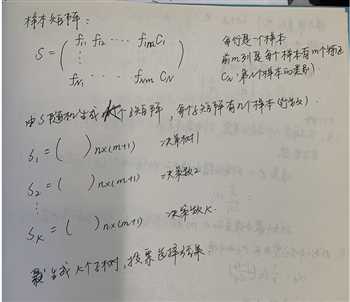 样本矩阵:
S = ( f₁₁ f₁₂ ... f₁ₘ C₁
⋮
f_N₁ ... f_Nm C_N )
每行是一个样本
前m列是每个样本有m个特征
C_N:第N个样本的类别
由S随机生成K个子矩阵,每个子矩阵有n个样本(行数)
S₁ = ( ) n×(m+1) 决策树1
S₂ = ( ) n×(m+1) 决策数2
⋮
S_K = ( ) n×(m+1) 决策数K
生成K个子树,投票选择结果